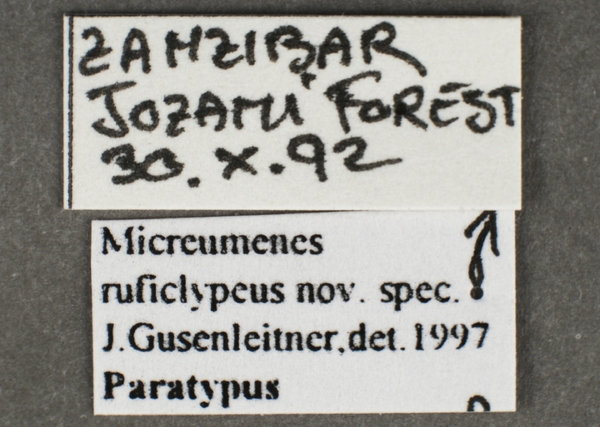 ZANZIBAR
JOZANI FOREST
30.X.92
Micreumenes
ruficlypeus nov. spec.
J.Gusenleitner,det.1997
Paratypus